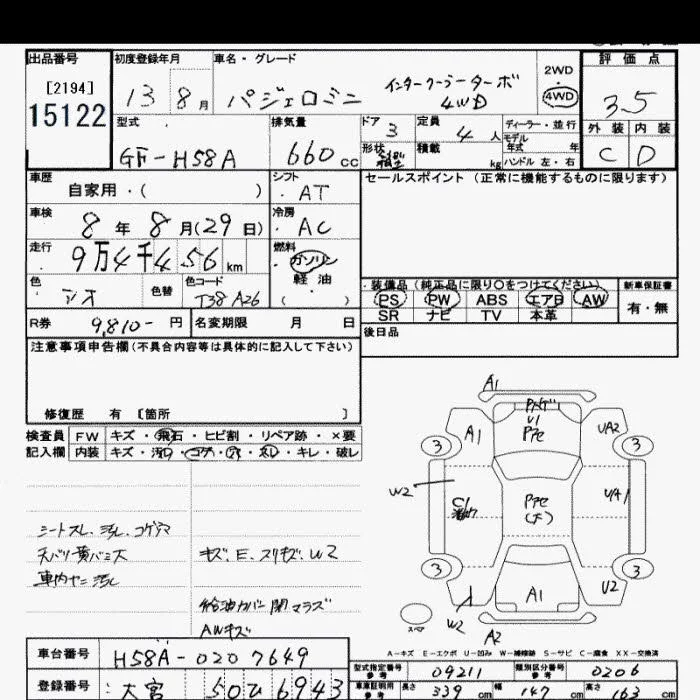 出品番号 初度登録年月 車名・グレード 評価点
[2194]
15122
13 8月 パジェロミニ インタークーラーターボ 4WD
2WD
4WD
3.5
型式 排気量 ドア 定員 ディーラー・並行
GF-H58A 660cc 3 4人
モデル年式 年
形状 積載 kg ハンドル 左・右
外装 内装
C D
車歴 シフト セールスポイント(正常に機能するものに限ります)
自家用・( ) AT
車検 冷房
8年 8月(29日) AC
走行 燃料
9万4千456km ガソリン
軽油
( )
色 色替 色コード
シオ T38 A26
装備品(純正品に限り○をつけてください) 新車保証書
PS PW ABS エアB AW 有・無
SR ナビ TV 本革
R券 9,810-円 名変期限 月 日
後日品
注意事項申告欄(不具合内容等は具体的に記入して下さい)
修復歴 有 [箇所 ]
検査員 FW キズ・飛石・ヒビ割・リペア跡・×要
記入欄 内装 キズ・汚れ・コゲ・穴・スレ・キレ・破レ
シートスレ、汚れ、コゲ穴
天バリ黄バミ大
車内ヤニ汚レ
キズ、E、スリキズ、W2
給油カバー開マラズ
AWキズ
A1
A1
U1
Pアセ
UA2
3
3
W2
C1
Pアセ
(大)
UA1
3
3
A1
U2
W2
A2
スペア
A-キズ E-エクボ U-凹み W-補修跡 S-サビ C-腐食 XX-交換済
車台番号 H58A-0207649
型式指定番号 09211 類別区分番号 0206
参考 参考
登録番号 大宮 50 ひ 6943
車車証明用 参考 長さ 339cm 幅 147cm 高さ 163cm